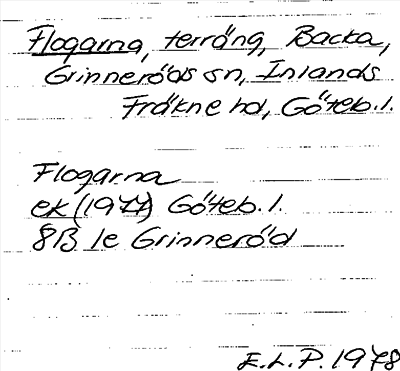 Flogarna, terräng, Backa,
Grinneröds sn, Inlands
Fräkne hd, Göteb. l.
Flogarna
ek (1977) Göteb. l.
8B 1e Grinneröd
E.L.P. 1978